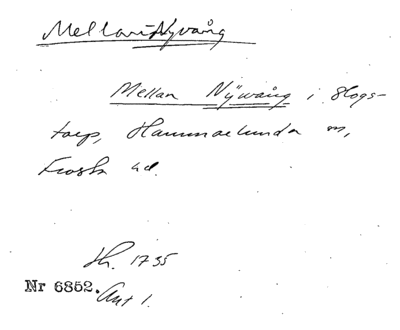 Mellan-Nyvång
Mellan Nÿwång i Skogs-
torp, Hammarlunda sn,
Frosta hd.
Jb. 1735
Nr 6852. Ant 1.